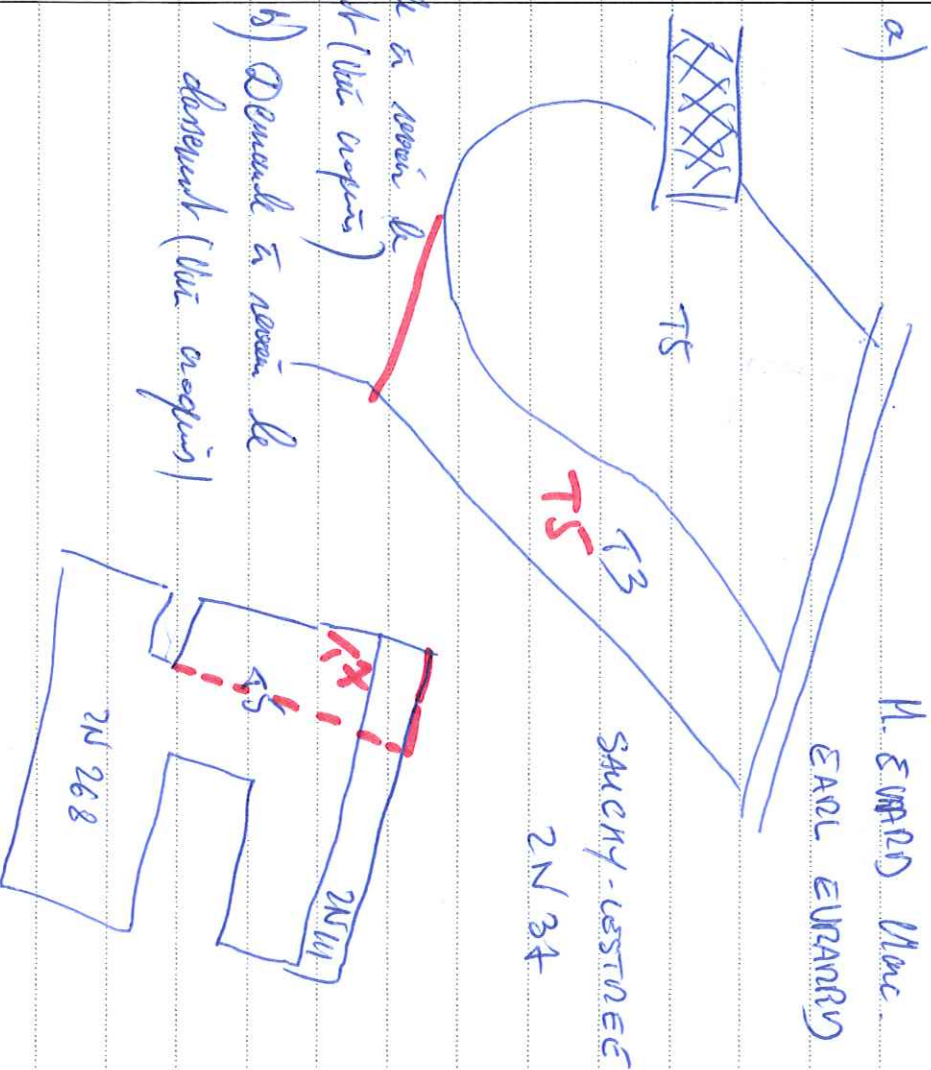 M. EVRARD Marc.
EARL EVRARD
SAUCHY-LESTREE
2N 37
a)
T5
T3
T5
à revoir le
(Voir croquis)
b) Demande à revoir le
classement (Voir croquis)
T5
2N 111
2N 268